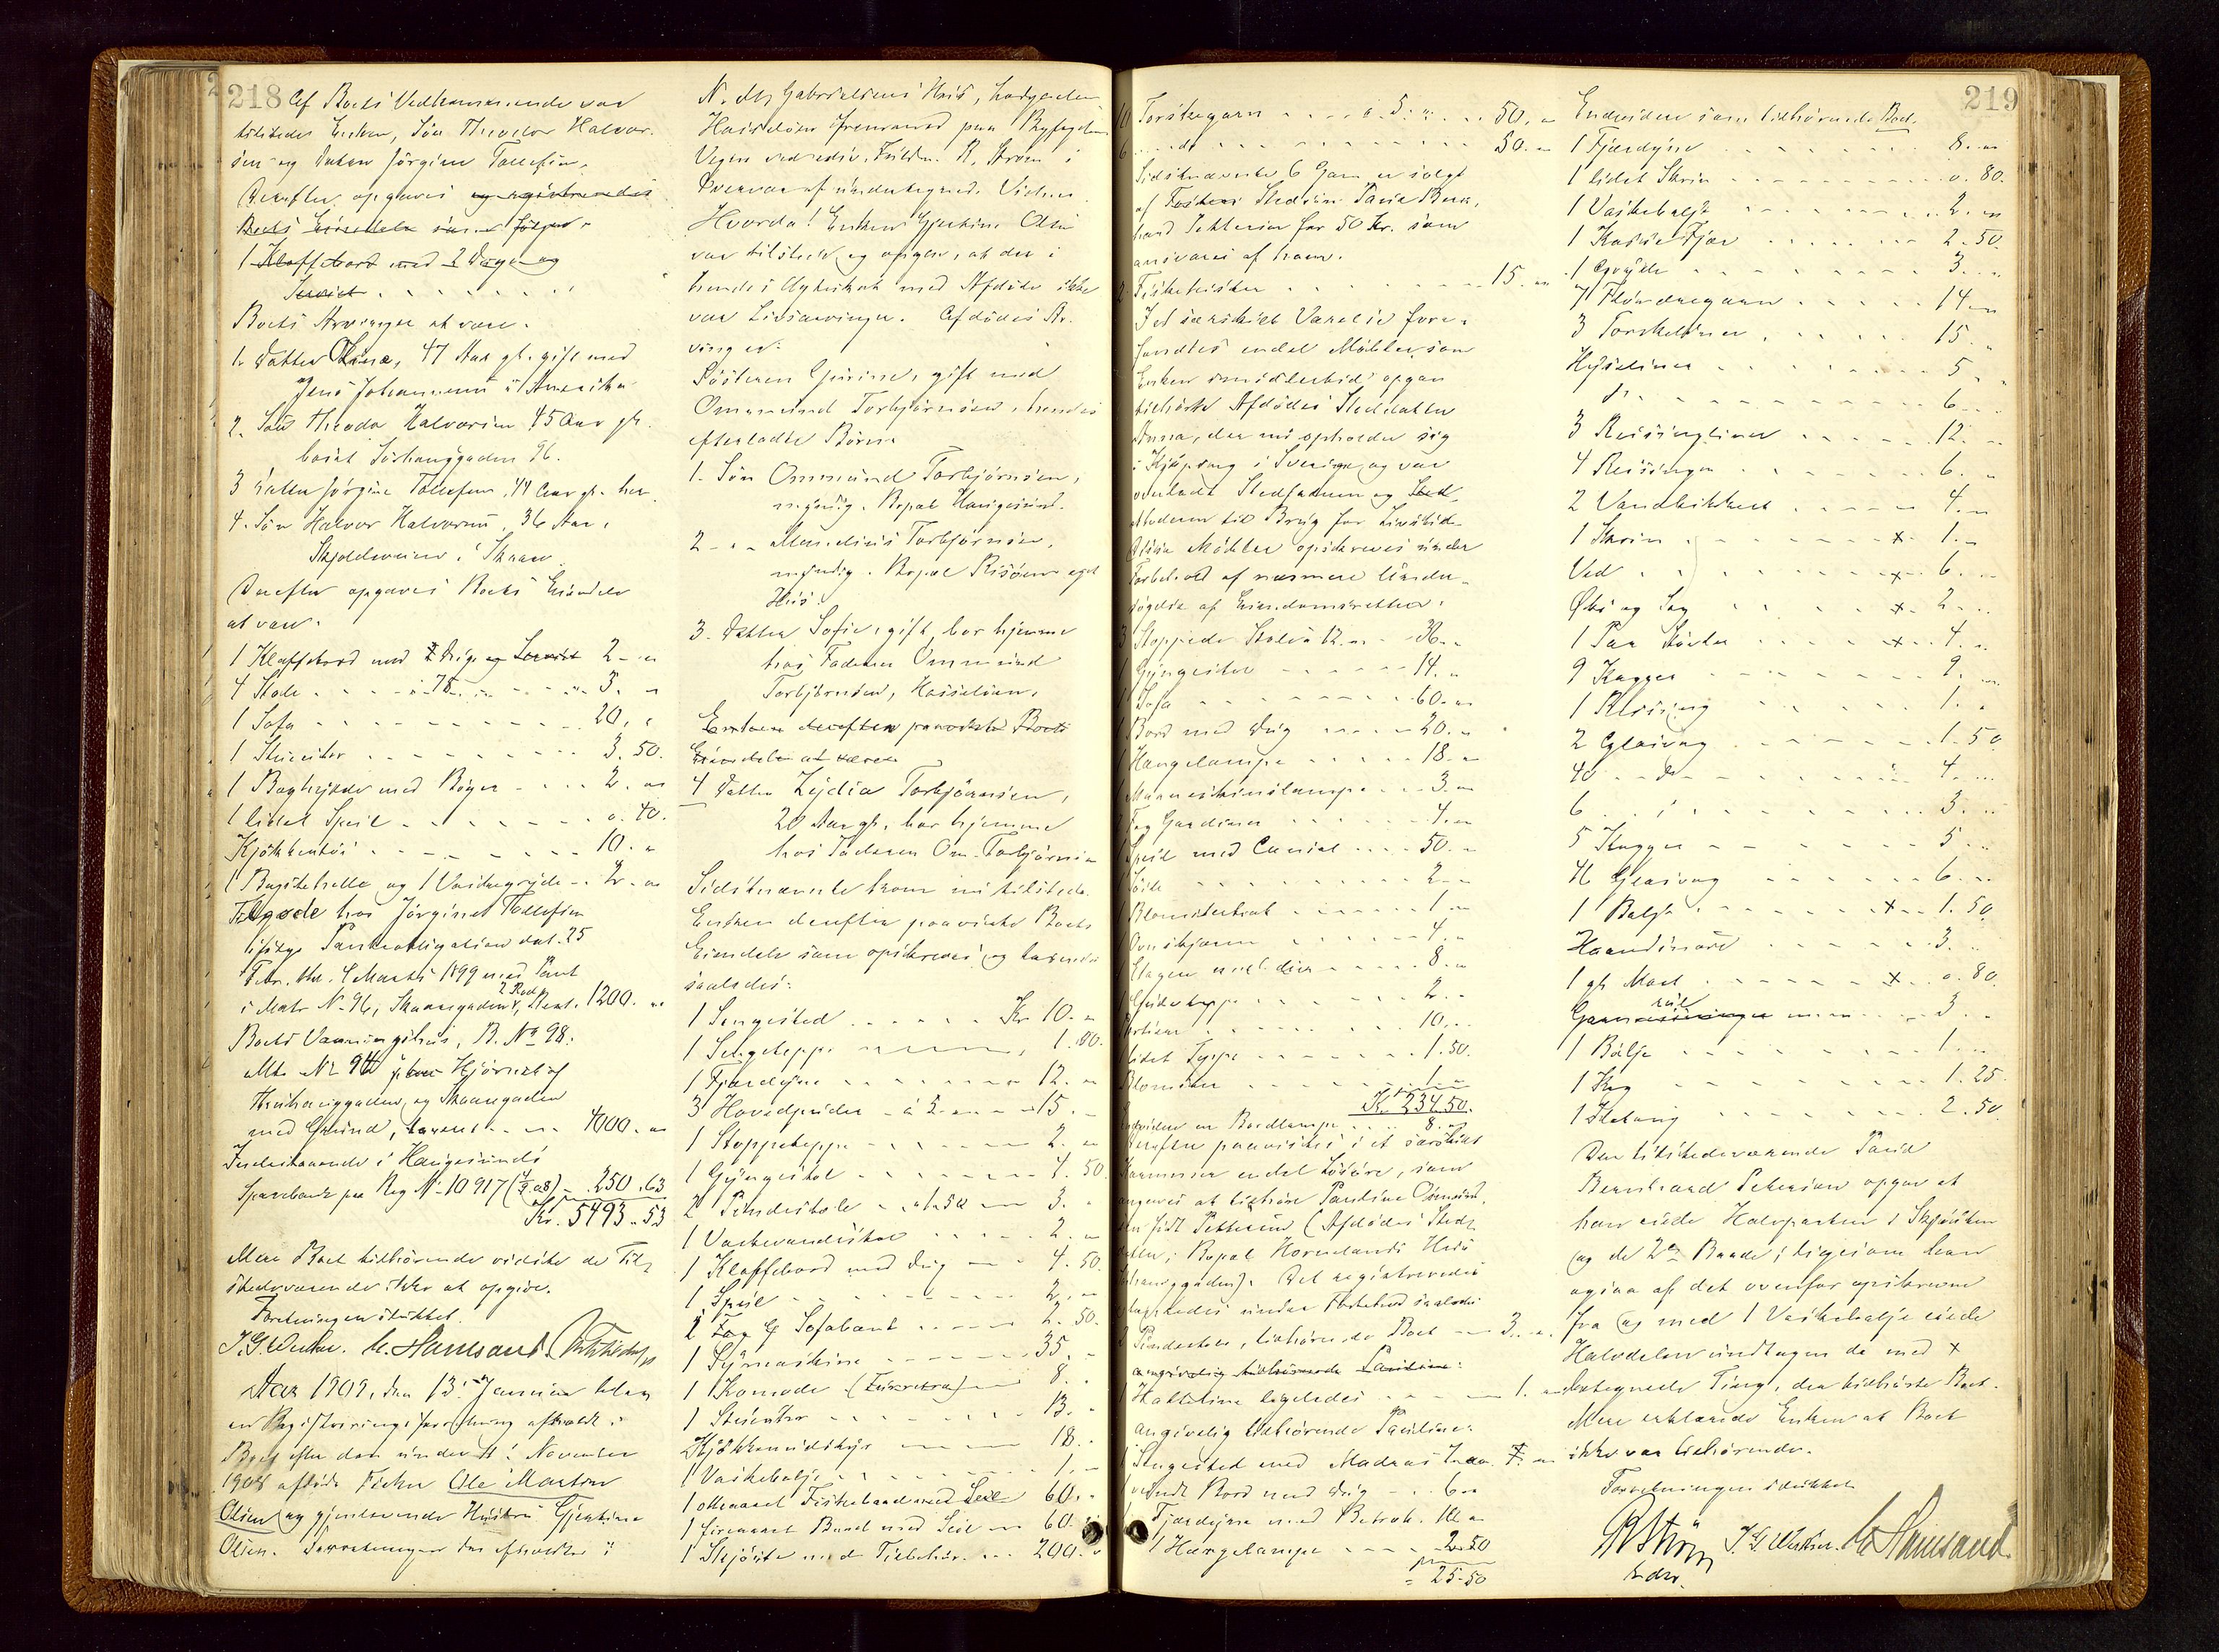 218
Af Boets Vedkommende var
tilstede Enken, Søn Theodor Halvor-
sen og Datter Jørgine Tollefsen.
Derefter opgaves og registreredes
Boets Eiendele som følger:
1 Klaffebord med 2 Duger og
Servict
Boets Arvinger at være:
1. Datter Olina, 47 Aar gl. gift med
Jens Johannesen i Amerika
2. Søn Theodor Halvorsen 45 Aar gl.
bosat Sørhauggaden 96.
3 Datter Jørgine Tollefsen, 44 Aar gl. her
4. Søn Halvor Halvorsen, 36 Aar,
Skjoldevær i Skaare
Derefter opgaves Boets Eiendele
at være.
1 Klaffebord med 2 Duge og Servict 2 - "
4 Stole - à 75 - 3. "
1 Sofa 20. "
1 Stueuhr 3. 50.
1 Boghylde med Bøger 2. "
1 lidet Speil 0. 40.
Kjøkkentøi 10. "
1 Bagstehelle og 1 Vaskegryde 2. "
Tilgode hos Jørginet Tollefsen
ifølge Panteobligation dat. 25
Febr. thl. 4 Marts 1899 med Pant
i Matr N. 96, Skaaregaden, 2 Rad, Rest. 1200. "
Boets Vaaningshus, B. No 98.
Mtr No 94 Hjørnet af
og Skaaregaden
med Grund, taxeret 4000. "
Indestaaende i Haugesunds
Sparebank paa Reg N. 10917 250.63
Kr. 5493.53
Mere Boet tilhørende vidste de Til-
stedeværende ikke at opgive.
Forretningen sluttet.
Aar 1909, den 13. Januar blev
en Registreringsforretning afholdt i
Boet efter den under 11. November
1908 afdøde Fisker Ole Martin
Olsen og gjenlevende Hustru Gjertine
Olsen. Forretningen blev afholdt i
N. M. Gabrielsens Hus, beliggende
Hasseløen paa Bygselgrund
Vegen ved edsv. Fuldm. R. Strøm i
Overvær af undertegnede Vidner
Hvorda! Enken Gjertine Olsen
var tilstede og opgav, at der i
hendes Ægteskab med Afdøde ikke
var Livsarvinger. Afdødes Ar-
vinger:
Søsteren Gurine, gift med
Ommund Torbjørnsen, hendes
efterladte Børn:
1. Søn Ommund Torbjørnsen,
myndig. Bopæl Haugesund.
2 - " - Torbjørnsen,
myndig. Bopæl Risøen eget
Hus.
3. Datter Sofie, gift, bor hjemme
hos Faderen Ommund
Torbjørnsen, Hasseløen.
Enken derefter paaviste Boets
Eiendele at være
4 Datter Lydia Torbjørnsen,
20 Aar gl., bor hjemme
hos Faderen Om. Torbjørnsen
Sidstnævnte kom nu tilstede.
Enken derefter paaviste Boets
Eiendele som opskreves og taxeredes
saaledes:
1 Sengested Kr 10. "
1 Sengeteppe 1.00.
1 Fjærdyne 12. "
3 Hovedpuder - à 5. " 15. -
1 Stoppeteppe 2. "
1 Gyngestol 4. 50
2 Pindestole - à 1.50 3. "
1 Vaskevandstol 2. "
1 Klaffebord med Dug 4. 50.
1 Speil 2. "
1 Sofabænk 2. 50.
1 Symaskine 35. -
1 Komode 8. "
1 Stueuhr 13. -
Kjøkkenudstyr 18. -
1 Vaskebalje 1. -
1 ottearet Fiskebaad med Seil 60. -
1 firearet Baad med Seil 60. "
1 Skjøite med Tilbehør 200. "
219
10 Torskegarn à 5. " 50. "
6 do 30. "
Sidstnævnte 6 Garn er solgt
af Stedsøn Paul Bern-
hard Pettersen for 30 Kr. som
ansvares af ham.
2 Fiskekister 15. "
I et særskildt Værelse fore-
fandtes endel Møbler, som
Enken imidlertid opgav
tilhørte Afdødes Steddatter
Anna, der nu opholder sig
i Kjøping i Sverige og var
overladt Stedfaderen og Sted-
moderen til Brug for Livstid.
Disse Møbler opskreves under
Forbehold af nærmere Under-
søgelse af Eiendomsretten.
3 Stoppede Stole à 12. " 36. -
1 Gyngestol 14. "
1 Sofa 60. "
1 Bord med Dug 20. "
1 Hængelampe 18. "
1 Maaneskinslampe 3. "
Fag Gardiner 4. "
Speil med Consol 50. "
2 -
Blomsterbord 1. "
Ovnskjærm 4. "
Etagere med 8. "
Gulvteppe 2. -
Portierer 10. -
1 lidet Teppe 1.50.
Blomster 1. -
Kr. 234.50.
Endvidere en Bordlampe 8. "
Derefter paavistes i et særskildt
Kammer endel Løsøre, som
angaves at tilhøre Pauline Osmund-
sen født Pettersen (Afdødes Sted-
datter, Bopæl Hovelands Hus
). Det registreredes
ligeledes under Forbehold saaledes
2 Pindestole, tilhørende Boet 3. "
angivelig tilhørende Pauline:
ligeledes 1. "
angivelig tilhørende Pauline:
1 Sengested med Madras 7. "
rundt Bord med Dug 6 "
1 Fjærdyne med Betræk 10 "
1 Hængelampe 2.50
= 25.50
Endvidere som tilhørende Boet.
1 Fjærdyne 8. "
1 lidet Skrin 0. 80.
1 Vaskebalje 2. "
1 Kasse Fjær 2. 50.
1 Gryde 3. "
7 Flyndregarn 14. "
3 Torskeliner 15. "
Hyseliner 5 "
do 6 "
3 12. "
4 6. "
2 4. "
1 Skrin x 1. "
Ved x 6. "
Øks og Sag x 2. "
1 Par Støvler x 4. "
9 Kagger 9. "
1 1. "
2 Glasvag 1. 50
40 - do 4. "
6 3. "
5 Kagger 5 "
4 Glasvag 6. "
1 Balje x 1. 50
Haandsnøre 3. "
1 gl. Mast x 0. 80.
3. -
1 Balje 1. "
1 1. 25.
1 2. 50
Den tilstedeværende Paul
Bernhard Pettersen opgav at
han eiede Halvparten i Skjøiten
og de 2de Baade, ligesom han
ogsaa af det ovenfor opskrevne
fra og med 1 Vaskebalje eiede
Halvdelen undtagen de med x
betegnede Ting, der tilhørte Boet.
Mere erklærede Enken at Boet
ikke var tilhørende.
Forretningen sluttet
R Strøm
edsv.